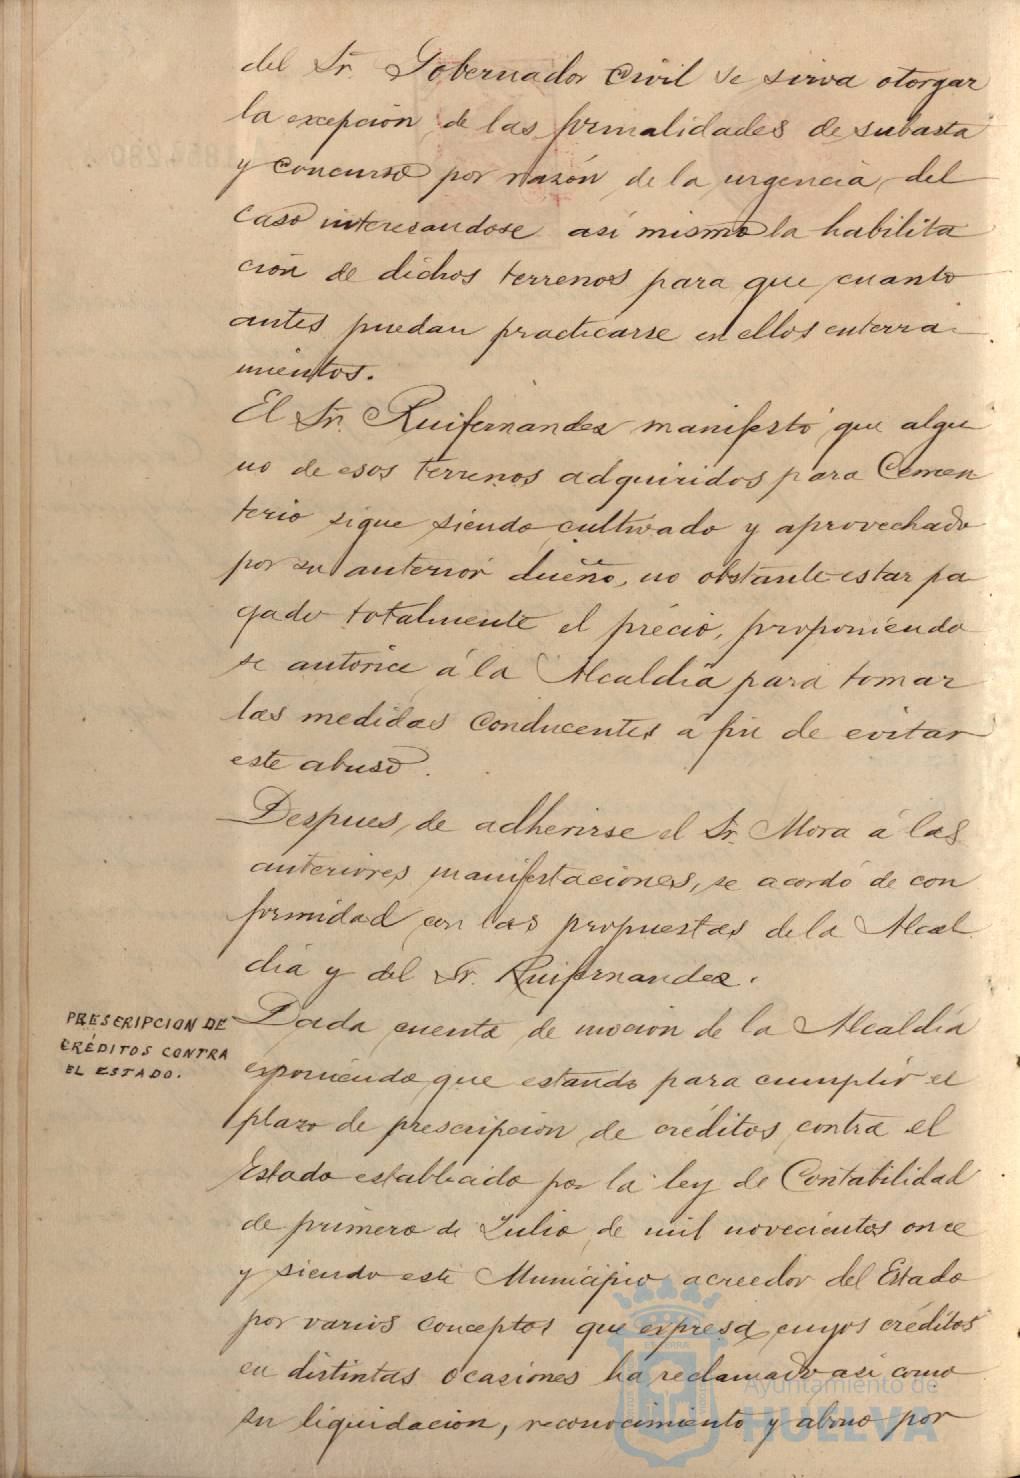 del Sr. Gobernador Civil se sirva otorgar
la excepción de las formalidades de subasta
y concurso por razón de la urgencia del
caso interesandose así mismo la habilita
ción de dichos terrenos para que cuanto
antes puedan practicarse en ellos enterra-
mientos.
El Sr. Ruifernandez manifestó que algu
no de esos terrenos adquiridos para Cemen
terio sigue siendo cultivado y aprovechado
por su anterior dueño, no obstante estar pa
gado totalmente el précio, proponiendo
se autorice á la Alcaldía para tomar
las medidas conducentes a fin de evitar
este abuso.
Despues de adherirse el Sr. Mora á las
anteriores manifestaciones, se acordó de con
formidad con las propuestas de la Alcal
día y del Sr. Ruifernandez.
PRESCRIPCION DE
CRÉDITOS CONTRA
EL ESTADO.
Dada cuenta de moción de la Alcaldía
exponiendo que estando para cumplir el
plazo de prescripción de créditos contra el
Estado establecido por la ley de Contabilidad
de primero de Julio de mil novecientos once
y siendo este Municipio acreedor del Estado
por varios conceptos que expresa cuyos créditos
en distintas ocasiones ha reclamado así como
su liquidación, reconocimiento y abono por
Ayuntamiento de
HUELVA